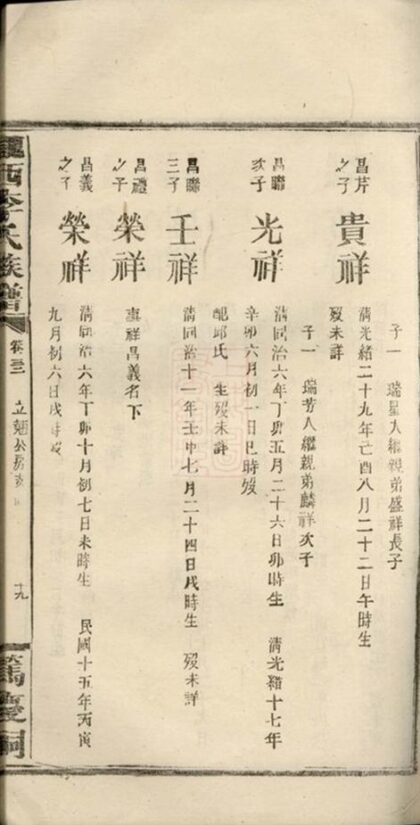 子一 瑞星人繼親弟盛祥長子
昌芹
之子
貴祥
清光緒二十九年亡酉八月二十二日午時生
歿未詳
子一 瑞芳人繼親弟麟祥次子
昌聯
次子
光祥
清同治六年丁卯五月二十六日卯時生 清光緒十七年
辛卯六月初一日巳時歿
配邱氏 生歿未詳
昌聯
三子
壬祥
清同治十一年壬申七月二十四日戌時生 歿未詳
昌禮
之子
榮祥
祥昌義名下
昌義
之子
榮祥
清同治六年丁卯十月初七日未時生 民國十五年丙寅
九月初六日戌時歿
隴西李氏族譜
立勉公房
十九
篤慶祠